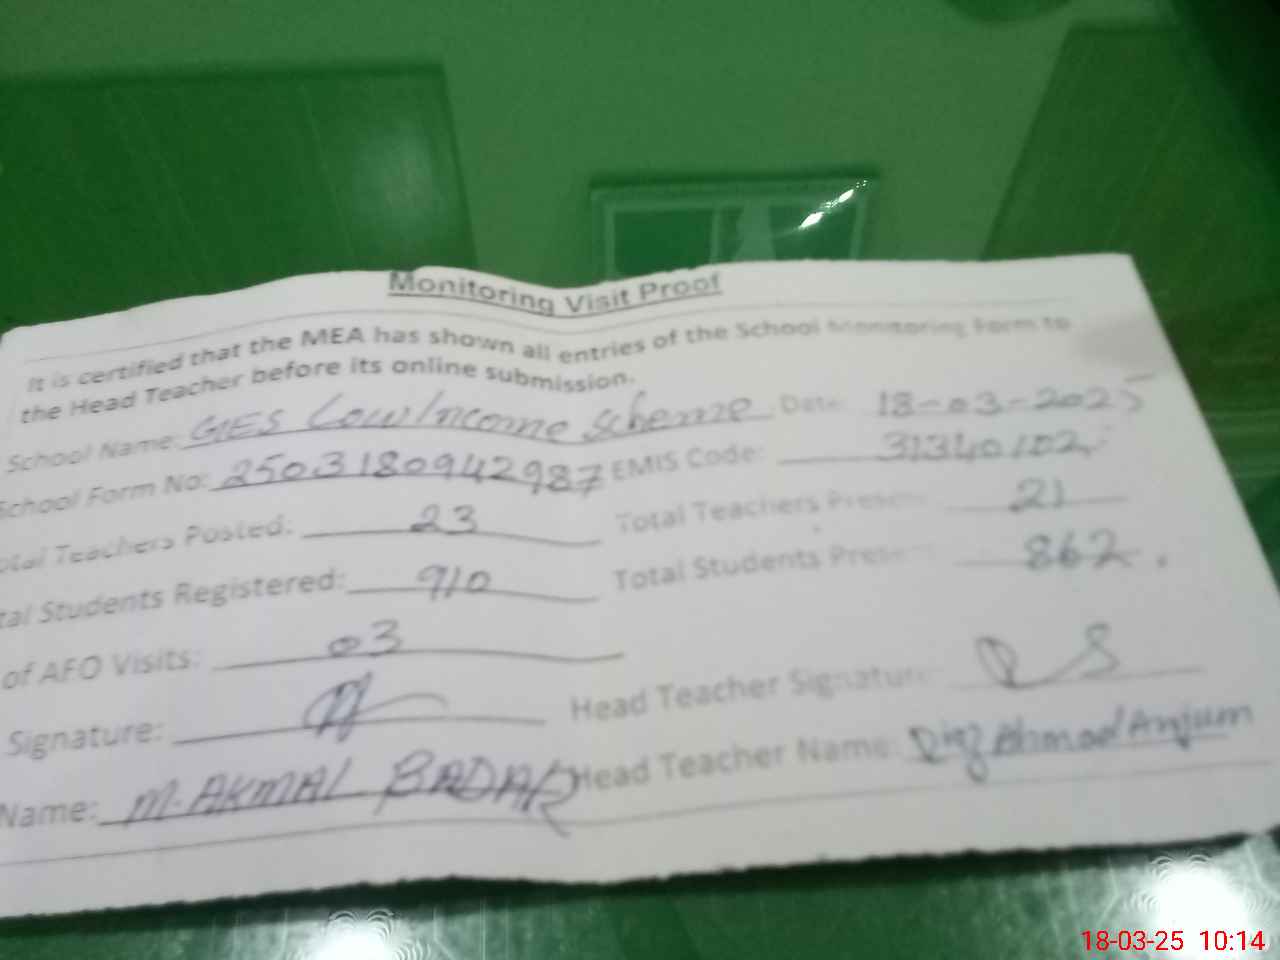 Monitoring Visit Proof
It is certified that the MEA has shown all entries of the School Monitoring Form to
the Head Teacher before its online submission.
School Name: GES Low Income Scheme Date: 18-03-2025
School Form No: 2503180942987 EMIS Code: 31340102
Total Teachers Posted: 23 Total Teachers Present 21
Total Students Registered: 910 Total Students Present 862
of AEO Visits: 03
Signature: Head Teacher Signature
Name: M. AKMAL BADAR Head Teacher Name: Ahmad Anjum
18-03-25 10:14